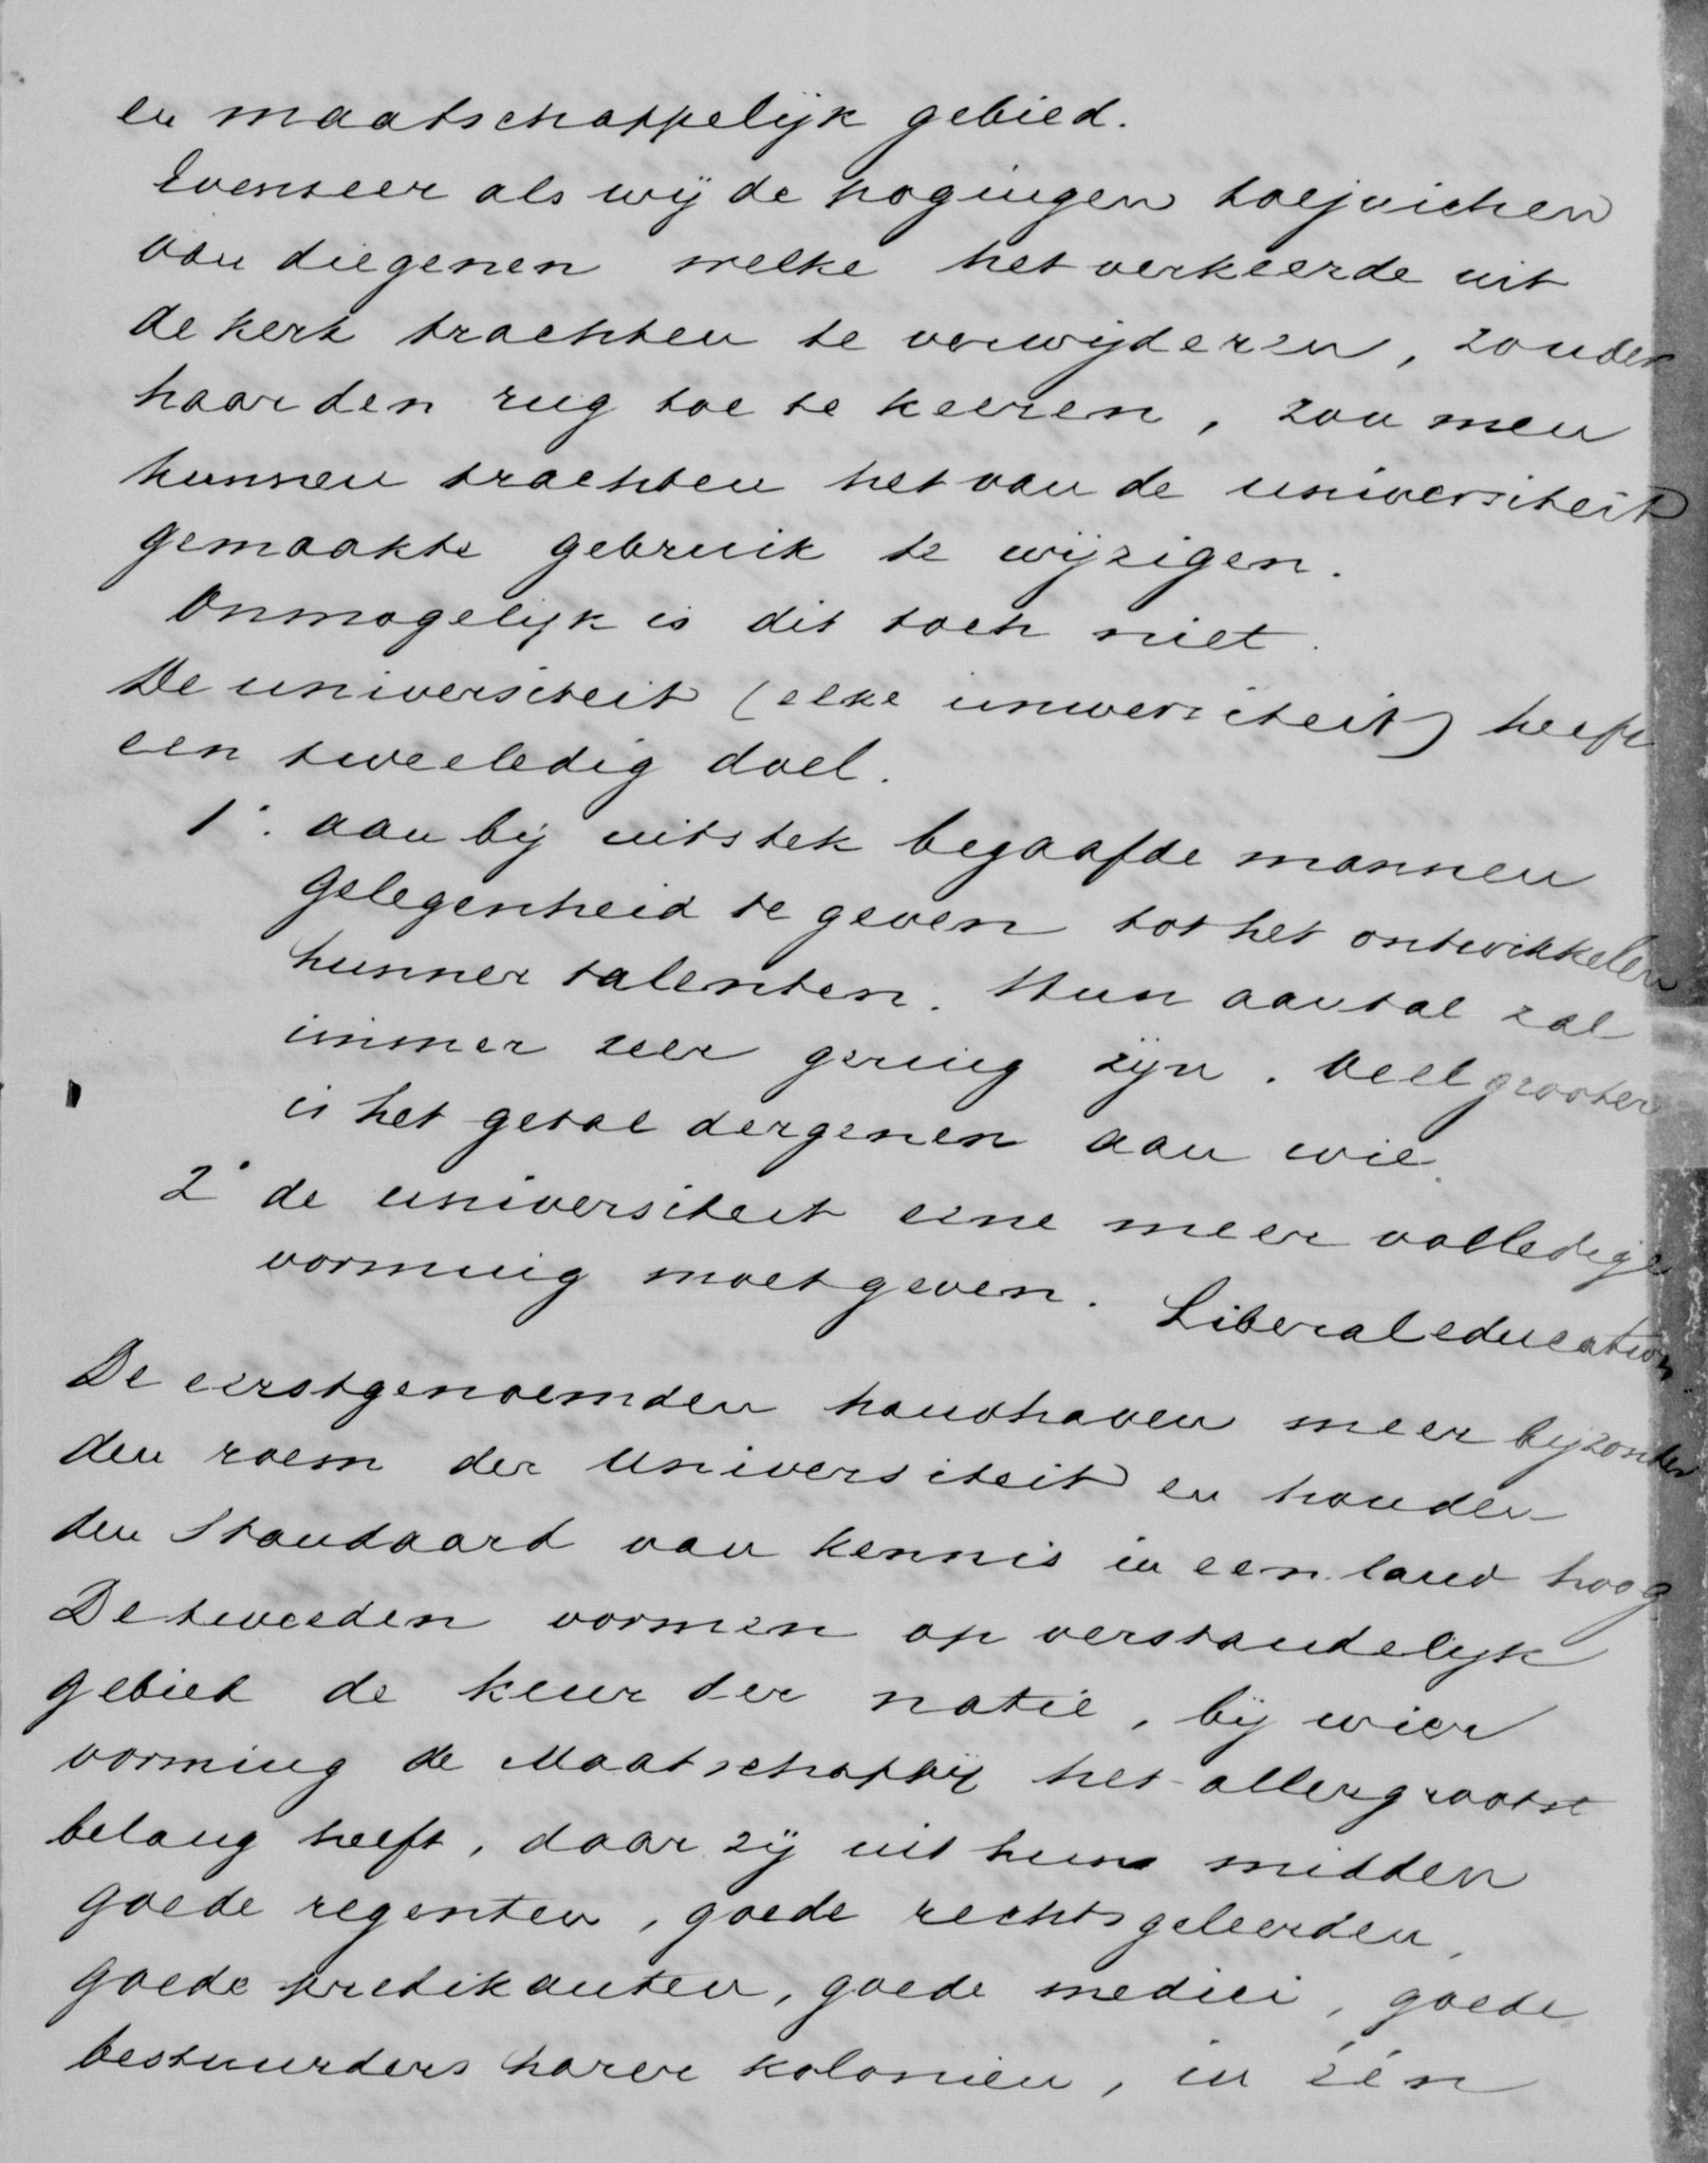 en maatschappelijk gebied.
Evenzeer als wij de pogingen toejuichen
van diegenen welke het verkeerde uit
de kerk trachten te verwijderen, zonder
haar den rug toe te keeren, zou men
kunnen trachten het van de universiteit
gemaakte gebruik te wijzigen.
Onmogelijk is dit toch niet.
De universiteit (elke universiteit) heeft
een tweeledig doel.
1°. aan bij uitstek begaafde mannen
gelegenheid te geven tot het ontwikkelen
hunner talenten. Hun aantal zal
immer zeer gering zijn. Veel grooter
is het getal dergenen aan wie
2° de universiteit eene meer volledige
vorming moet geven. Liberal education.
De eerstgenoemden handhaven meer bijzonder
den roem der Universiteit en houden
den Standaard van kennis in een land hoog
De tweeden vormen op verstandelijk
gebied de keur der natie, bij wier
vorming de Maatschappij het allergrootst
belang heeft, daar zij uit hun midden
goede regenten, goede rechtsgeleerden,
goede predikanten, goede medici, goede
bestuurders harer kolonien, in één